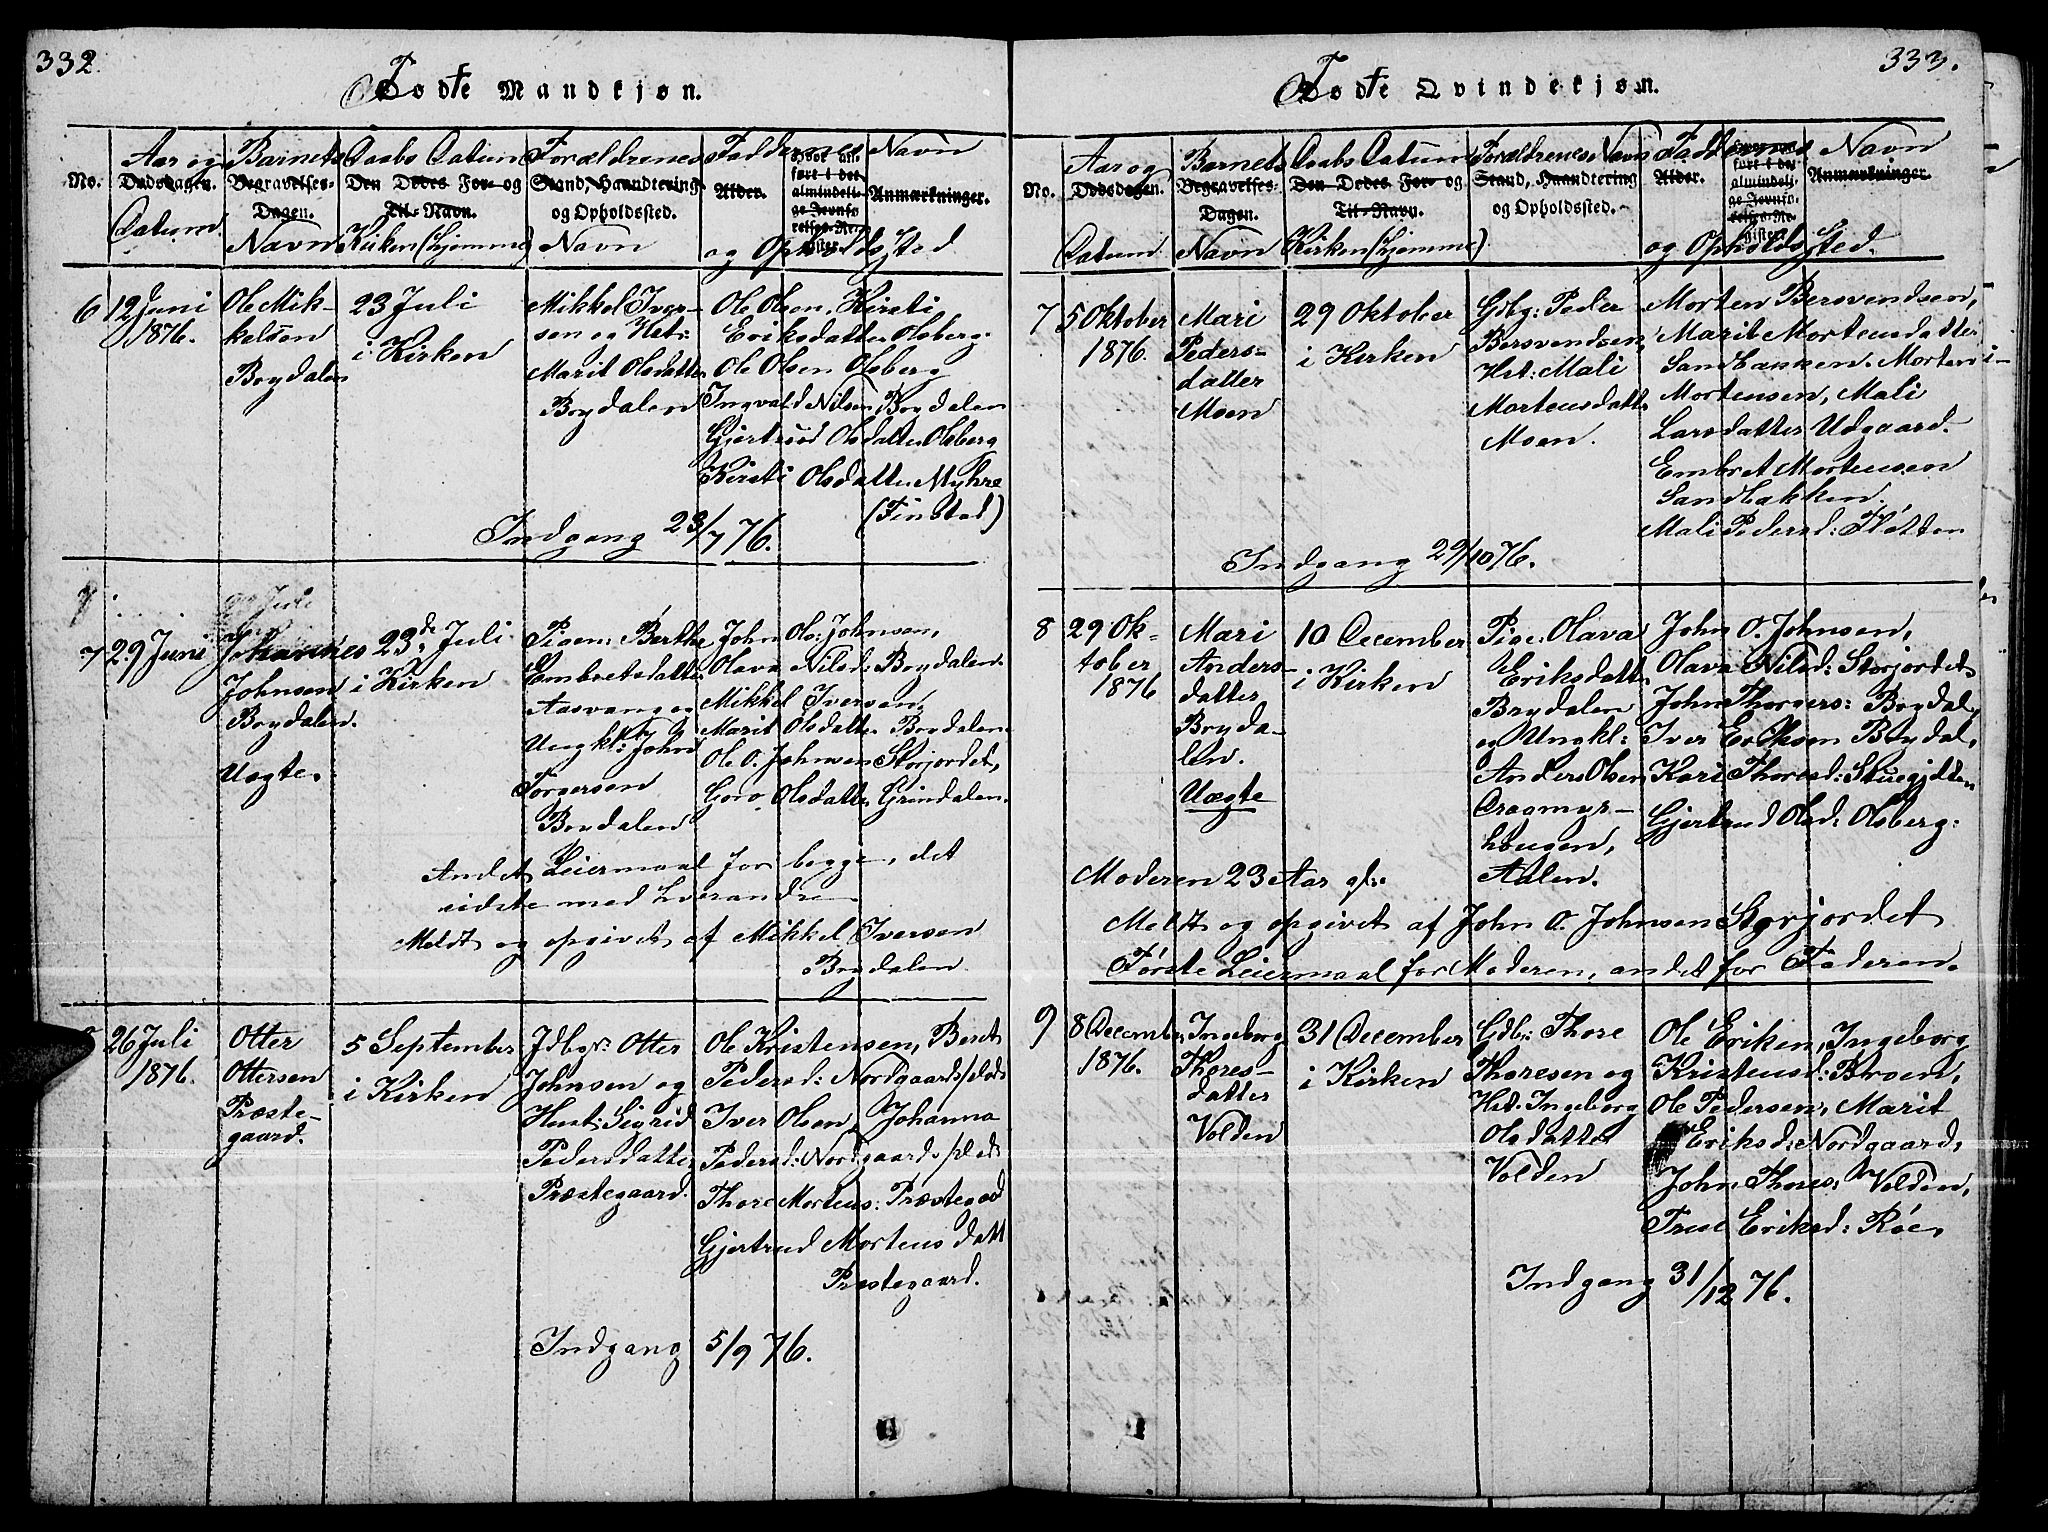 332.
Fødte Mandkjøn.
No.
Aar og
Dødsdagen.
Datum.
Barnets
Begravelses-
Dagen.
Navn
Daabs Datum
Den Dødes For- og
Til-Navn.
Kirken (hjemme)
Forældrenes
Stand, Haandtering
og Opholdssted.
Navn
Faddernes Navn
Alder.
Anmærkninger.
og Opholdssted
6
12 Juni
1876.
Ole Mik-
kelsen
Brydalen
23 Juli
i Kirken
Mikkel Iver-
sen og Hst:
Marit Olsdatter
Brydalen
Ole Olsen, Kirsti
Eriksdatter Olsberg.
Ole Olsen Olsberg
Ingvald Nilsen Brydalen
Gjertrud Olsdatter Olsberg
Kirsti Olsdatter Myhre
(Finstad)
Indgang 23/7 76.
7
29 Juni
Johannes
Johnsen
Brydalen.
Uægte.
23de Juli
i Kirken
Pigen: Berthe
Embretsdatter
Aasvang og
Ungkl: John
Torgersen
Brydalen
John Ols: Johnsen,
Olava Nilsd: Brydalen.
Mikkel Iversen,
Marit Olsdatter Brydalen
Ole O. Johnsen Storjordet,
Goro Olsdatter Grindalen.
Andet Leiermaal for begge, det
sidste med hverandre
Meldt og opgivet af Mikkel Iversen
Brydalen
26 Juli
1876.
Otter
Ottersen
Præste-
gaard.
5 September
i Kirken
Jdbgr: Otter
Johnsen og
Hust: Sigrid
Pedersdatter
Præstegaard.
Ole Kristensen, Beret
Pedersd: Nordgaardsplads
Iver Olsen, Johanna
Pedersd: Nordgaardsplads
Thore Mortens: Præstegaard
Gjertrud Mortensdatt
Præstegaard.
Indgang 5/9 76.
333.
Fødte Qvindekjøn.
No.
Aar og
Dødsdagen.
Datum
Barnets
Begravelses-
Dagen.
Navn
Daabs Datum
Den Dødes For- og
Til-Navn.
Kirken (hjemme)
Forældrenes Navn
Stand, Haandtering
og Opholdssted.
Faddernes Navn
Alder.
Anmærkninger.
og Opholdssted.
7
5 Oktober
1876.
Mari
Peders-
datter
Moen
29 Oktober
i Kirken
Gdbg: Peder
Bersvendsen,
Hst: Mali
Mortensdatt.
Moen.
Morten Bersvendsen,
Marit Mortensdatter
Sandbakken. Morten
Mortensen, Mali
Larsdatter Udgaard.
Embret Mortensen
Sandbakken.
Mali Pedersd: Fløtten
Indgang 29/10 76.
8
29 Ok-
tober
1876
Mari
Anders-
datter
Bryda-
len.
Uægte
10 December
i Kirken
Pige: Olava
Eriksdatt.
Brydalen
og Ungkl:
Anders Olsen
Dragmyr-
haugen,
Aalen.
John O. Johnsen,
Olava Nilsd: Storjordet
John Thorgers: Brydal,
Iver Eriksen Brydal,
Kari Thoresd:
Gjertrud Olsd: Olsberg:
Moderen 23 Aar gl:
Meldt og opgivet af John O. Johnsen Storjordet
Første Leiermaal for Moderen, andet for Faderen.
9
8 December
1876.
Ingeborg
Thores-
datter
Volden
31 December
i Kirken
Gdb: Thore
Thoresen og
Hst. Ingeborg
Olsdatter
Volden
Ole Eriken, Ingeborg
Kristensd: Broen,
Ole Pedersen, Marit
Eriksd: Nordgaard,
John Thores: Volden,
Trui Eriksd: Røe,
Indgang 31/12 76.